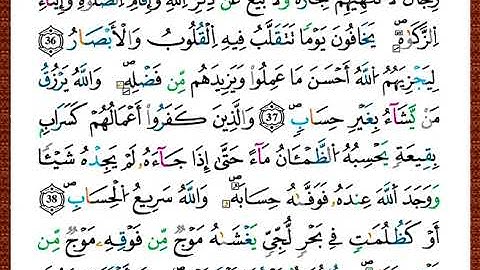 رِجَالٌ لَّا تُلْهِيهِمْ تِجَارَةٌ وَلَا بَيْعٌ عَن ذِكْرِ اللَّهِ وَإِقَامِ الصَّلَوٰةِ وَإِيتَآءِ
الزَّكَوٰةِ ۙ يَخَافُونَ يَوْمًا تَتَقَلَّبُ فِيهِ الْقُلُوبُ وَالْأَبْصَارُ ۙ 36
لِيَجْزِيَهُمُ اللَّهُ أَحْسَنَ مَا عَمِلُوا۟ وَيَزِيدَهُم مِّن فَضْلِهِ ۗ وَاللَّهُ يَرْزُقُ
مَن يَّشَآءُ بِغَيْرِ حِسَابٍ 37 وَالَّذِينَ كَفَرُوٓا۟ أَعْمَالُهُمْ كَسَرَابٍ
بِقِيعَةٍ يَحْسِبُهُ الظَّمْـَٔانُ مَآءً حَتَّىٰٓ إِذَا جَآءَهُ لَمْ يَجِدْهُ شَيْـًٔا
وَوَجَدَ اللَّهَ عِندَهُ فَوَفَّىٰهُ حِسَابَهُ ۗ وَاللَّهُ سَرِيعُ الْحِسَابِ 38
أَوْ كَظُلُمَاتٍ فِي بَحْرٍ لُّجِّيٍّ يَغْشَاهُ مَوْجٌ مِّن فَوْقِهِ مَوْجٌ مِّن